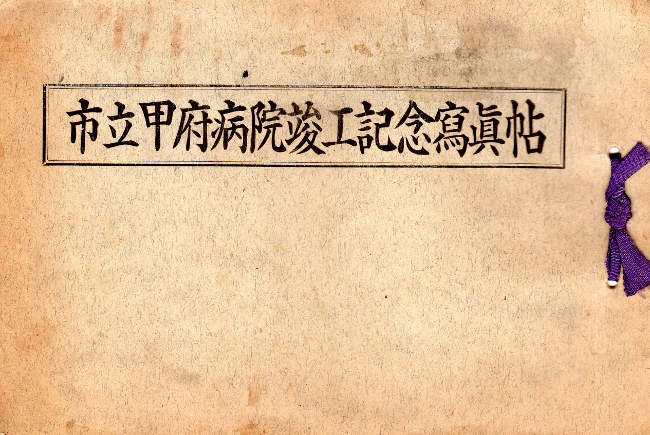 市立甲府病院竣工記念寫眞帖